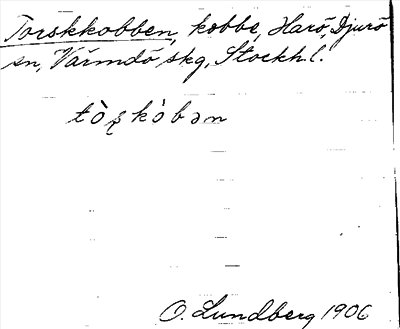 Torskkobben, kobbe, Harö, Djurö
sn, Värmdö skg, Stockh.l.
tò̀ʂkò́bən
O. Lundberg 1906